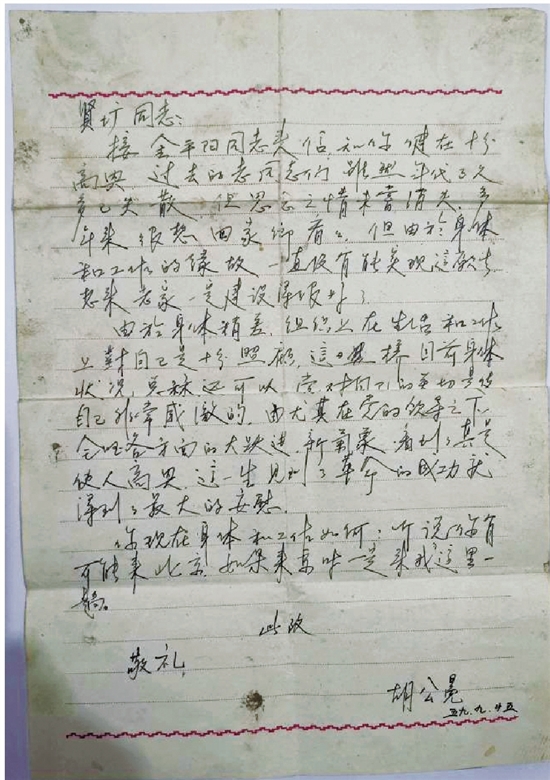 贤圹同志:
接金平阳同志来信知你健在十分
高兴。过去的老同志们虽然年代已久
多已失散,但思念之情未尝消失。多
年来很想回家乡看看,但由於身体
和工作的缘故一直没有能实现這
想来老家一定建设得很好了
由於身体稍差,组织上在生活和工作
上對自己是十分照顧,這目前身体
状况总还可以,党对的关切是使
自己非常感激的,尤其在党的领导之下
全国各方面的大跃进新氣象看到了真是
使人高兴。这一生見到了革命的成功就
得到了最大的安慰
你现在身体和工作如何;听说你有
可能来北京,如果来京时定来我这里一
趟。
此致
敬礼
胡公冕
五九.九.廿五